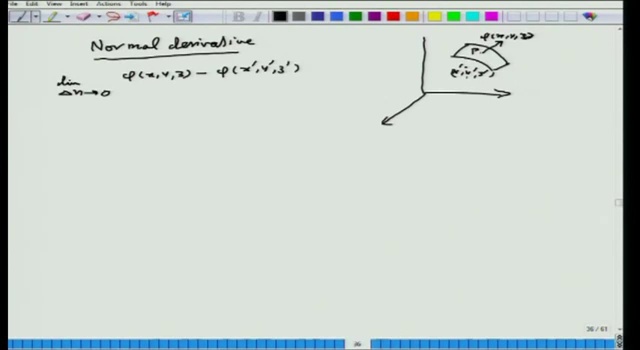 File Edit View Insert Actions Tools Help
Normal derivative
φ(x,y,z)
φ(x,y,z) - φ(x',y',z')
lim
Δn→0
P
(x',y',z')
36 / 61
36